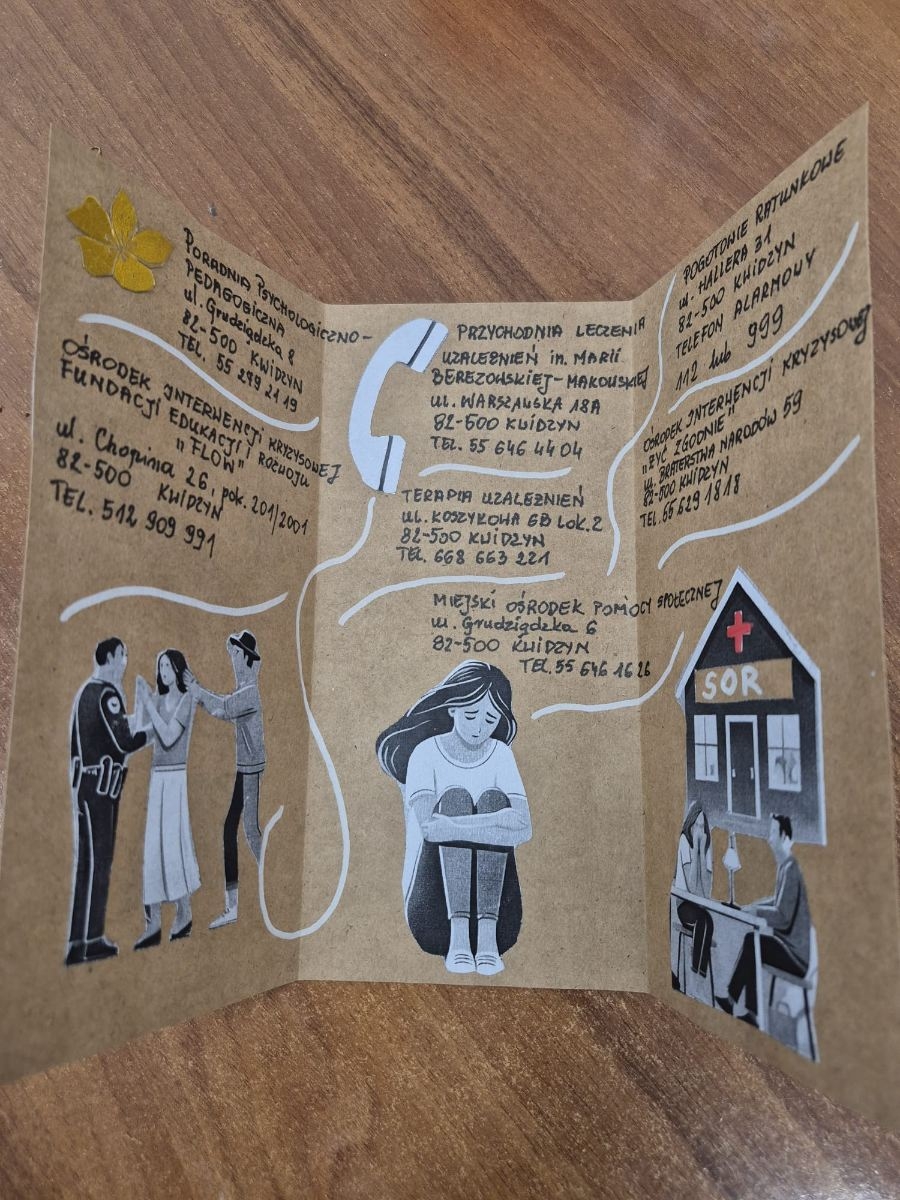 PORADNIA PSYCHOLOGICZNO-
PEDAGOGICZNA
ul. Grudziądzka 8
82-500 KWIDZYN
TEL. 55 279 21 19
OŚRODEK INTERWENCJI KRYZYSOWEJ
FUNDACJI EDUKACJI I ROZWOJU
"FLOW"
ul. Chopina 26, pok. 201/2001
82-500 KWIDZYN
TEL. 512 909 991
PRZYCHODNIA LECZENIA
UZALEŻNIEŃ im. MARII
BEREZOWSKIEJ-MAKOWSKIEJ
ul. WARSZAWSKA 18A
82-500 KWIDZYN
TEL. 55 646 44 04
TERAPIA UZALEŻNIEŃ
UL. KOSZYKOWA 6B lok. 2
82-500 KWIDZYN
TEL. 668 663 221
MIEJSKI OŚRODEK POMOCY SPOŁECZNEJ
ul. Grudziądzka 6
82-500 KWIDZYN
TEL. 55 646 16 26
POGOTOWIE RATUNKOWE
ul. HALLERA 31
82-500 KWIDZYN
TELEFON ALARMOWY
112 lub 999
OŚRODEK INTERWENCJI KRYZYSOWEJ
"ŻYĆ ZGODNIE"
ul. BRATERSTWA NARODÓW 59
82-500 KWIDZYN
TEL. 55 629 18 18
SOR